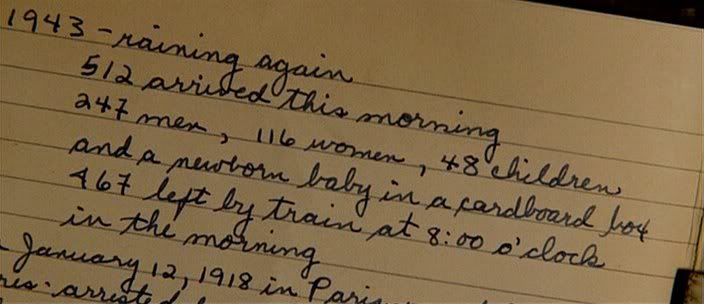 1943 - raining again
512 arrived this morning
247 men, 116 women, 48 children
and a newborn baby in a cardboard box
467 left by train at 8:00 o'clock
in the morning
January 12, 1918 in Paris
arrested